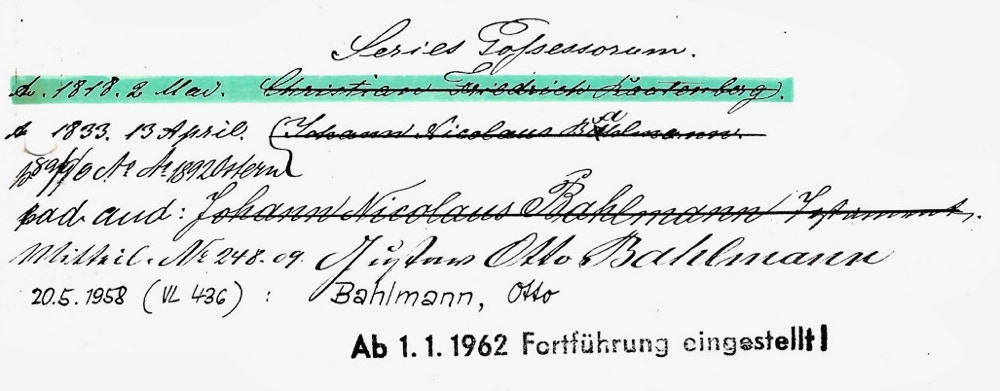 Series Possessorum.
A. 1818. 2 Mai. Christian Friedrich
A 1833. 13 April. Johann Nicolaus Bahlmann.
1892 Ostern
ead. aud: Johann Nicolaus Bahlmann Testament.
Mittheil. Nr 248. 09. Gustav Otto Bahlmann
20.5.1958 (VL 436) : Bahlmann, Otto
Ab 1.1.1962 Fortführung eingestellt!